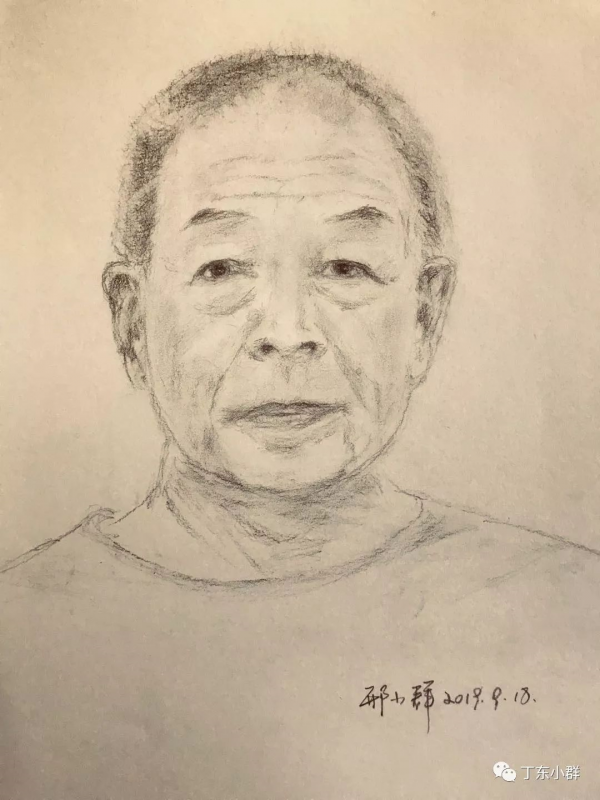 邢小群 2019.9.18.
丁东小群